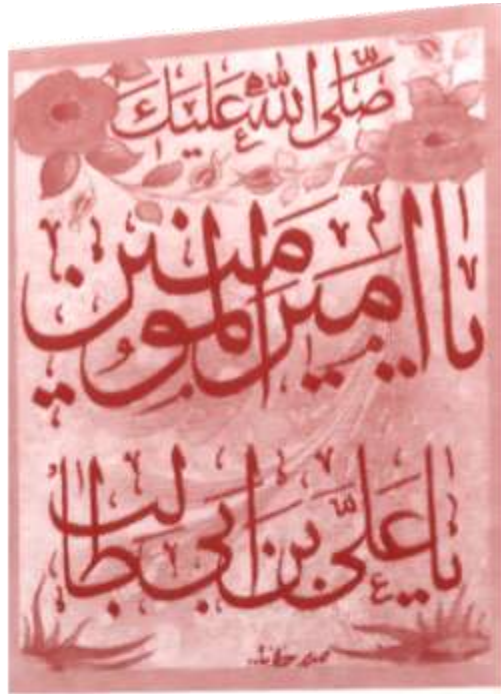 صَلَّى اللهُ عَلَيْكَ
يا امير المومنين
يا عَلىّ بن ابى طالب